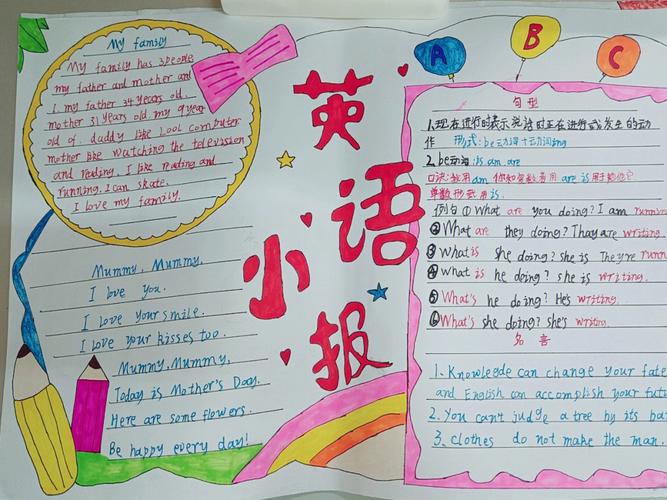 My family
My family has 3people
my father and mother and
I. my father 34 years old.
mother 31 years old. my 9 year
old of. daddy like Lool computer
mother like watching the television
and reading. I like reading and
running. I can skate.
I love my family.
Mummy, Mummy,
I love you.
I love your smile.
I love your kisses too.
Mummy, Mummy,
Today is Mother's Day.
Here are some flowers.
Be happy every day!
英
语
小
报
A
B
C
句型
1.现在进行时表示说话时正在进行或发生的动
作 形式:be动词+动词ing
2. be动词:is.am.are
口诀:我用am 你和复数看用are is用于他她它
单数形式用is.
例句① What are you doing? I am running
②What are they doing? Thay are writing.
③What is she doing? she is They're runn
④What is he doing? she is writing.
⑤What's he doing? He's writing.
⑥What's she doing? she's writing.
名言
1. Knowlegde can change your fate
and English can accomplish your futu
2. You can't judge a tree by its ba
3. clothes do not make the man.